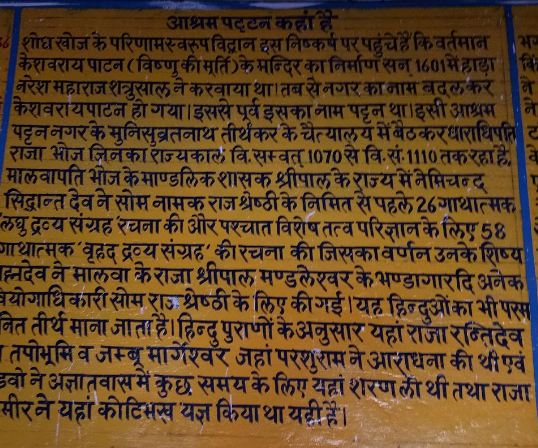 आश्रम पट्टन कहां है
शोध खोज के परिणामस्वरुप विद्वान इस निष्कर्ष पर पहुंचे हैं कि वर्तमान
केशवराय पाटन ( विष्णु की मूर्ति ) के मन्दिर का निर्माण सन् 1601 में हाडा
नरेश महाराज शत्रुसाल ने करवाया था। तब से नगर का नाम बदल कर
केशवरायपाटन हो गया। इससे पूर्व इसका नाम पट्टन था। इसी आश्रम
पट्टन नगर के मुनिसुव्रतनाथ तीर्थंकर के चैत्यालय में बैठकर धाराधिपति
राजा भोज जिनका राज्यकाल वि. सम्वत् 1070 से वि. सं. 1110 तक रहा है,
मालवापति भोज के माण्डलिक शासक श्रीपाल के राज्य में नेमिचन्द्र
सिद्धान्त देव ने सोम नामक राज श्रेष्ठी के निमित से पहले 26 गाथात्मक
लघु द्रव्य संग्रह रचना की और पश्चात विशेष तत्व परिज्ञान के लिए 58
गाथात्मक 'वृहद द्रव्य संग्रह' की रचना की जिसका वर्णन उनके शिष्य
ह्मदेव ने मालवा के राजा श्रीपाल मण्डलेश्वर के भण्डागारदि अनेक
योगाधिकारी सोम राज श्रेष्ठी के लिए की गई। यह हिन्दुओं का भी परम
तीर्थ माना जाता है। हिन्दु पुराणों के अनुसार यहां राजा रन्तिदेव
तपोभूमि व जम्बु मार्गेश्वर जहां परशुराम ने आराधना की थी एवं
डवो ने अज्ञातवास में कुछ समय के लिए यहां शरण ली थी तथा राजा
मीर ने यहां कोटिमख यज्ञ किया था यही हैं।